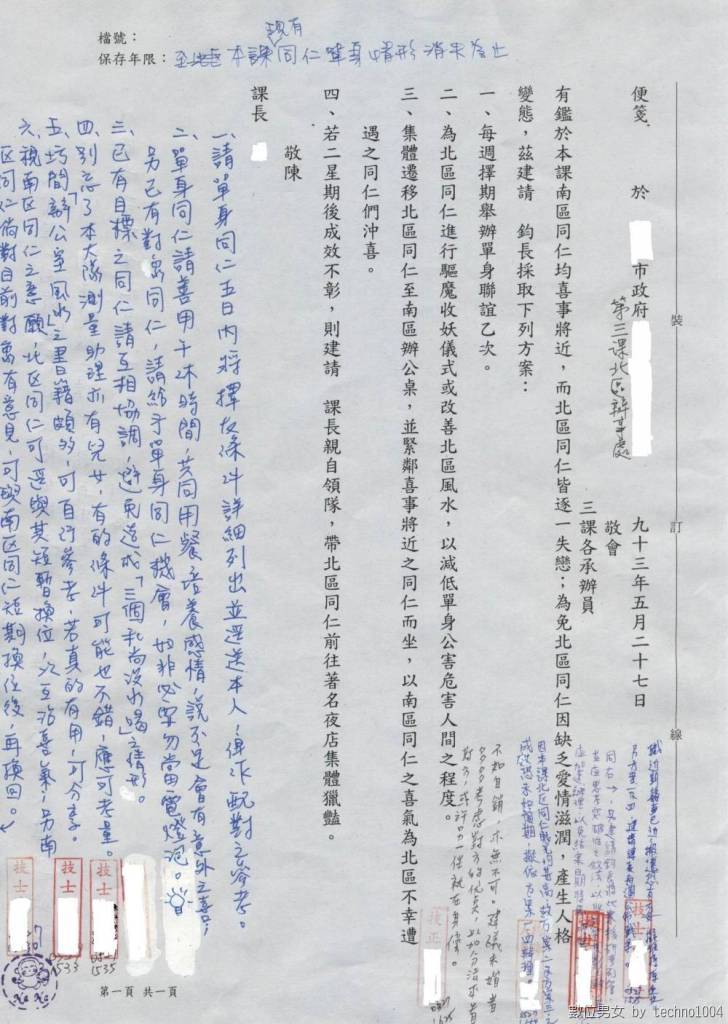 檔號：
保存年限：至本課現有同仁單身情形消失為止
便箋　於　市政府
第三課北區辦事處
九十三年五月二十七日
敬會
三課各承辦員
有鑑於本課南區同仁均喜事將近，而北區同仁皆逐一失戀；為免北區同仁因缺乏愛情滋潤，產生人格
變態，茲建請　鈞長採取下列方案：
一、每週擇期舉辦單身聯誼乙次。
二、為北區同仁進行驅魔收妖儀式或改善北區風水，以減低單身公害危害人間之程度。
三、集體遷移北區同仁至南區辦公桌，並緊鄰喜事將近之同仁而坐，以南區同仁之喜氣為北區不幸遭
遇之同仁們沖喜。
四、若二星期後成效不彰，則建請　課長親自領隊，帶北區同仁前往著名夜店集體獵豔。
敬陳
課長
一、請單身同仁五日內將擇友條件詳細列出並逕送本人，俾作配對之參考。
二、單身同仁請善用午休時間，共同用餐培養感情，說不定會有意外之喜，
另已有對象同仁，請給予單身同仁機會，如非必要勿當電燈泡。
三、已有目標之同仁請互相協調，避免造成「三個和尚沒水喝」之情形。
四、別忘了本大隊測量助理亦有兒女，有的條件可能也不錯，應可考量。
五、坊間「辦公室風水」之書籍頗多，可自行參考，若真的有用，可分享。
六、視南區同仁之意願，北區同仁可選與其短暫換位，以互沾喜氣，另南
區同仁倘對目前對象有意見，可與南區同仁短期換位後，再換回。
不如自願，亦無不可。建議未婚者
多多考慮對方的優點，
對方，或許另一半就在身旁。
技士
技士
技士
技正
技士
技士
裝
訂
線
第一頁 共一頁
數位男女 by techno1004